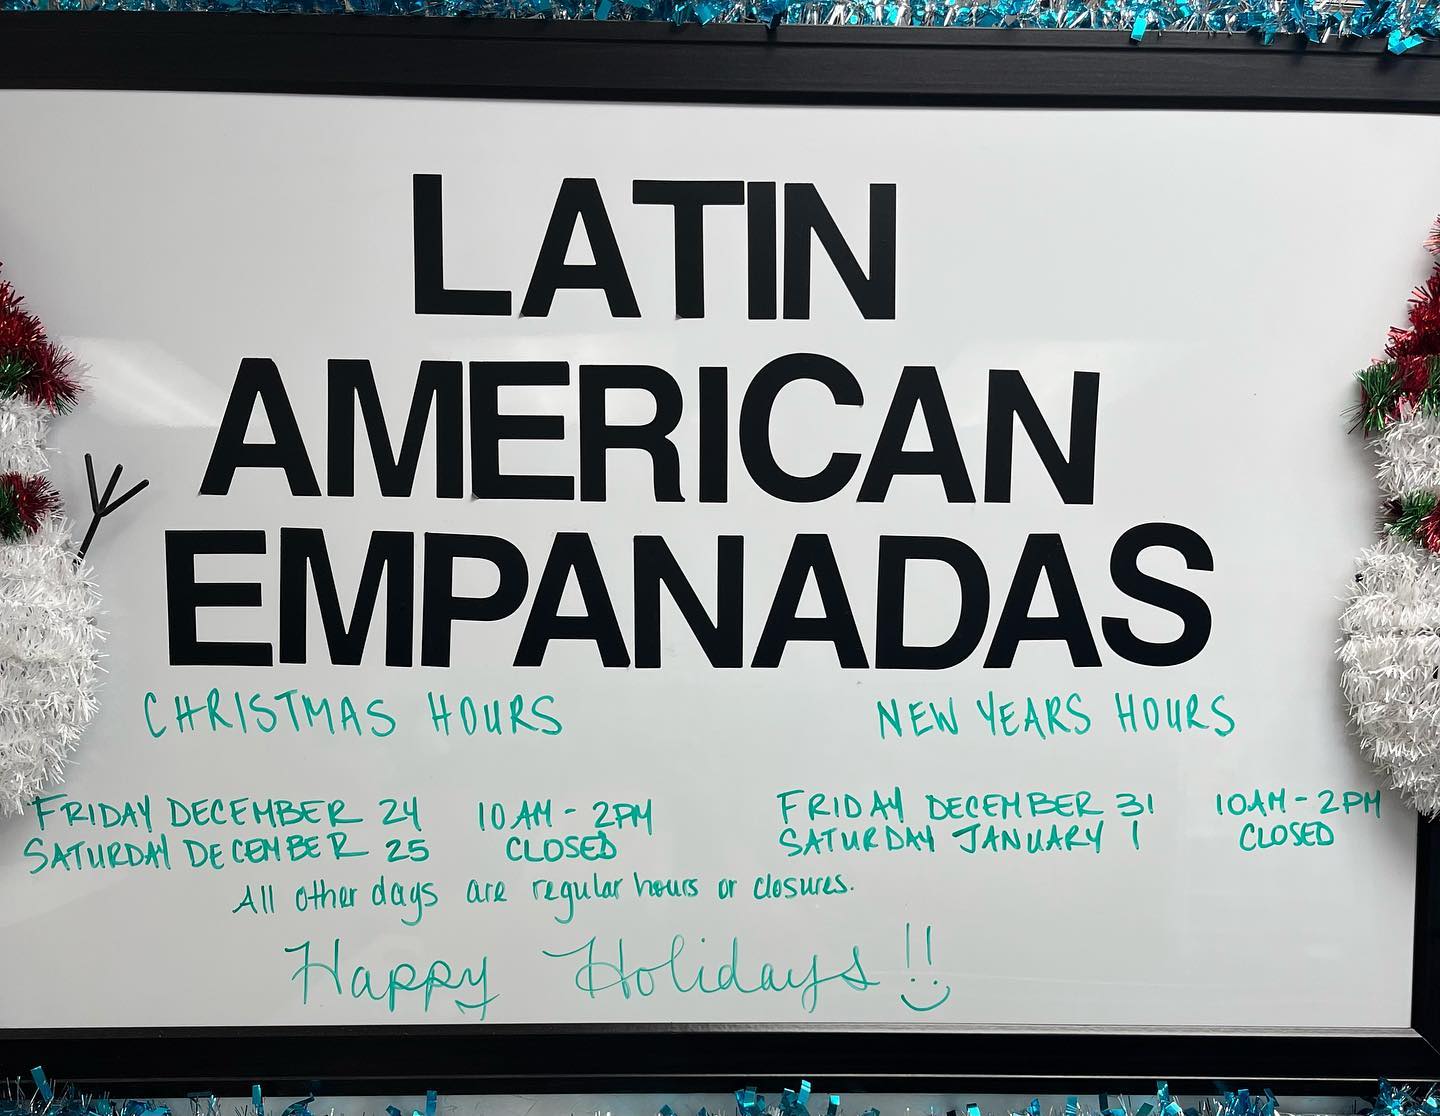 LATIN
AMERICAN
EMPANADAS
CHRISTMAS HOURS
FRIDAY DECEMBER 24 10AM - 2PM
SATURDAY DECEMBER 25 CLOSED
NEW YEARS HOURS
FRIDAY DECEMBER 31 10AM - 2PM
SATURDAY JANUARY 1 CLOSED
All other days are regular hours or closures.
Happy Holidays!!